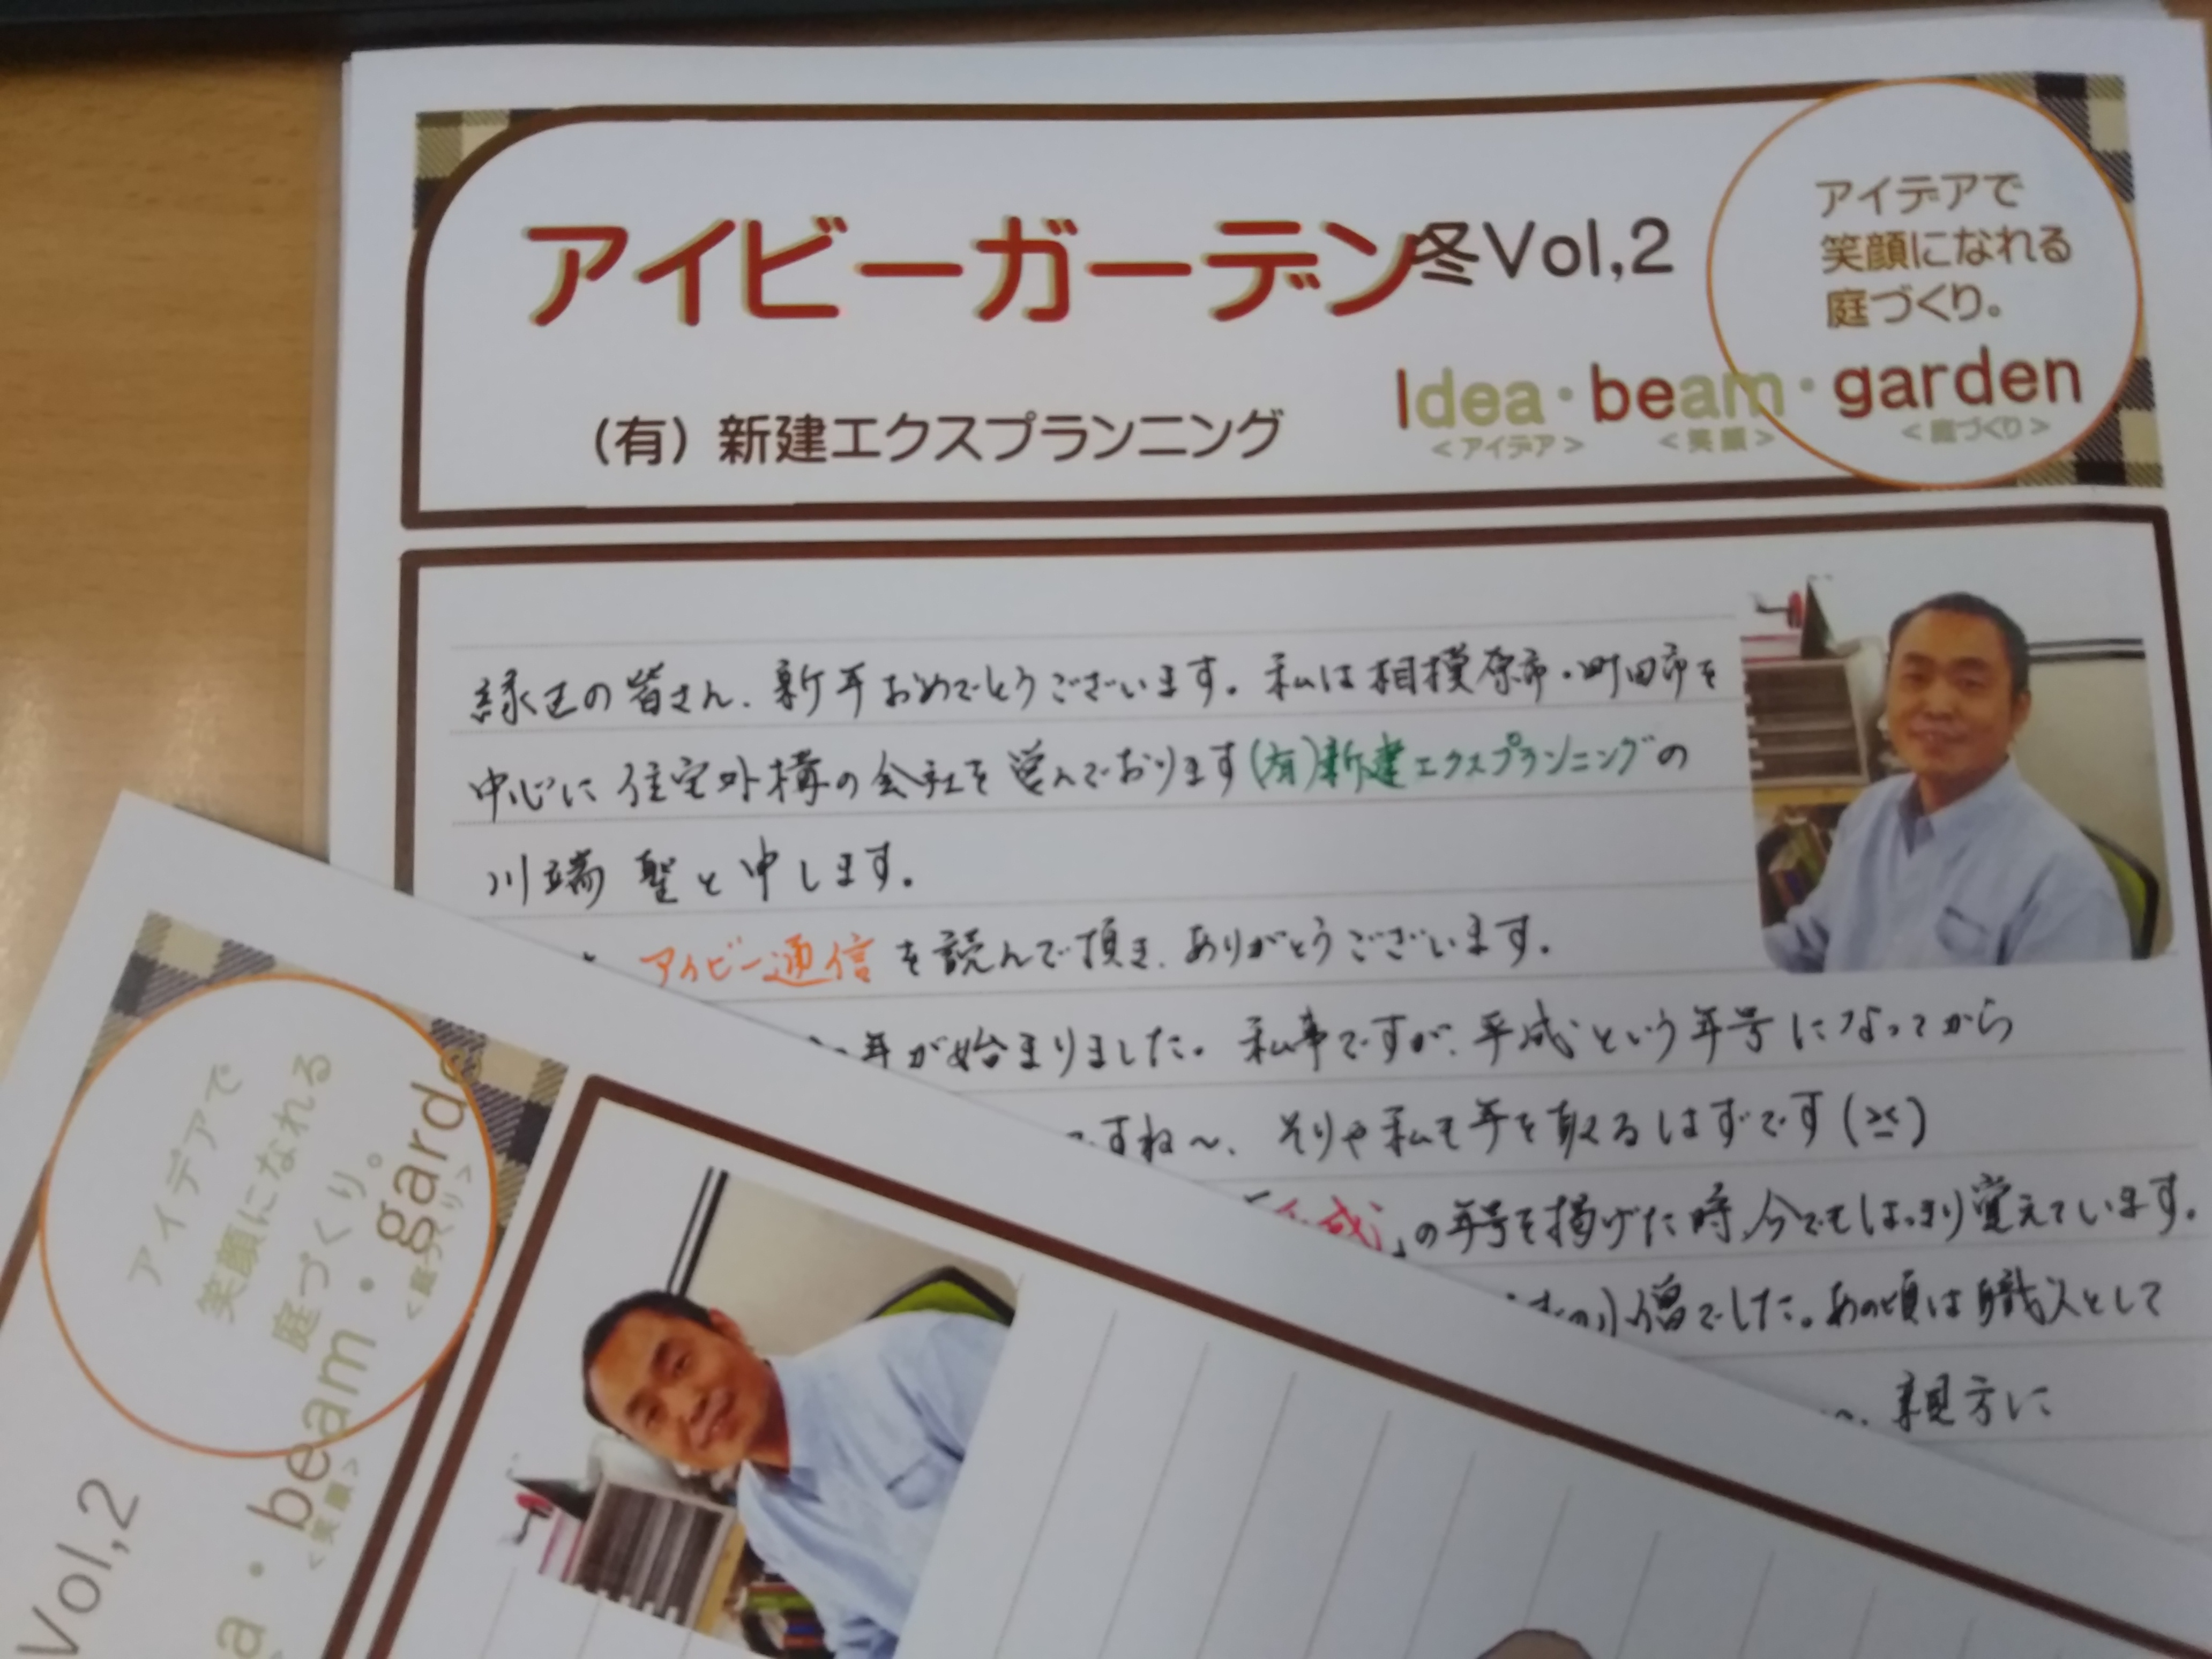 アイビーガーデン冬Vol,2
アイデアで
笑顔になれる
庭づくり。
Idea・beam・garden
<アイデア> <笑顔> <庭づくり>
(有)新建エクスプランニング
緑区の皆さん、新年おめでとうございます。私は相模原市・町田市を
中心に住宅外構の会社を営んでおります(有)新建エクスプランニングの
川端 聖と申します。
アイビー通信を読んで頂き、ありがとうございます。
年が始まりました。私事ですが、平成という年号になってから
すね〜、そりゃ私も年を取るはずです(>_<)
成」の年号を掲げた時、今でもはっきり覚えています。
小僧でした。あの頃は職人として
親方に
アイデアで
笑顔になれる
庭づくり。
a・beam・garde
<笑顔> <庭づくり>
Vol,2